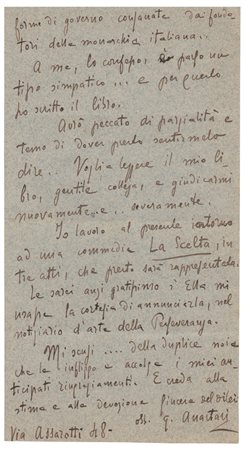 forme di governo consunate dai fonda
tori della monarchia italiana..
A me, lo confesso, è parso un
tipo simpatico... e per questo
ho scritto il libro.
Avrò peccato di parzialità e
temo di dover presto sentirmelo
dire.. Voglia leggere il mio li-
bro, gentile collega, e giudicarmi
nuovamente e.. severamente.
Io lavoro al presente intorno
ad una commedia La Scelta, in
tre atti, che presto sarà rappresentata.
Le sarei anzi gratissimo s'Ella mi
usasse la cortesia di annunciarla, nel
notiziario d'arte della Perseveranza.
Mi scusi .... della duplice noia
che le infliggo e accolga i miei an
ticipati ringraziamenti. E creda alla
stima e alla devozione sincera del di Lei
obb. G.
Via Assarotti 48-